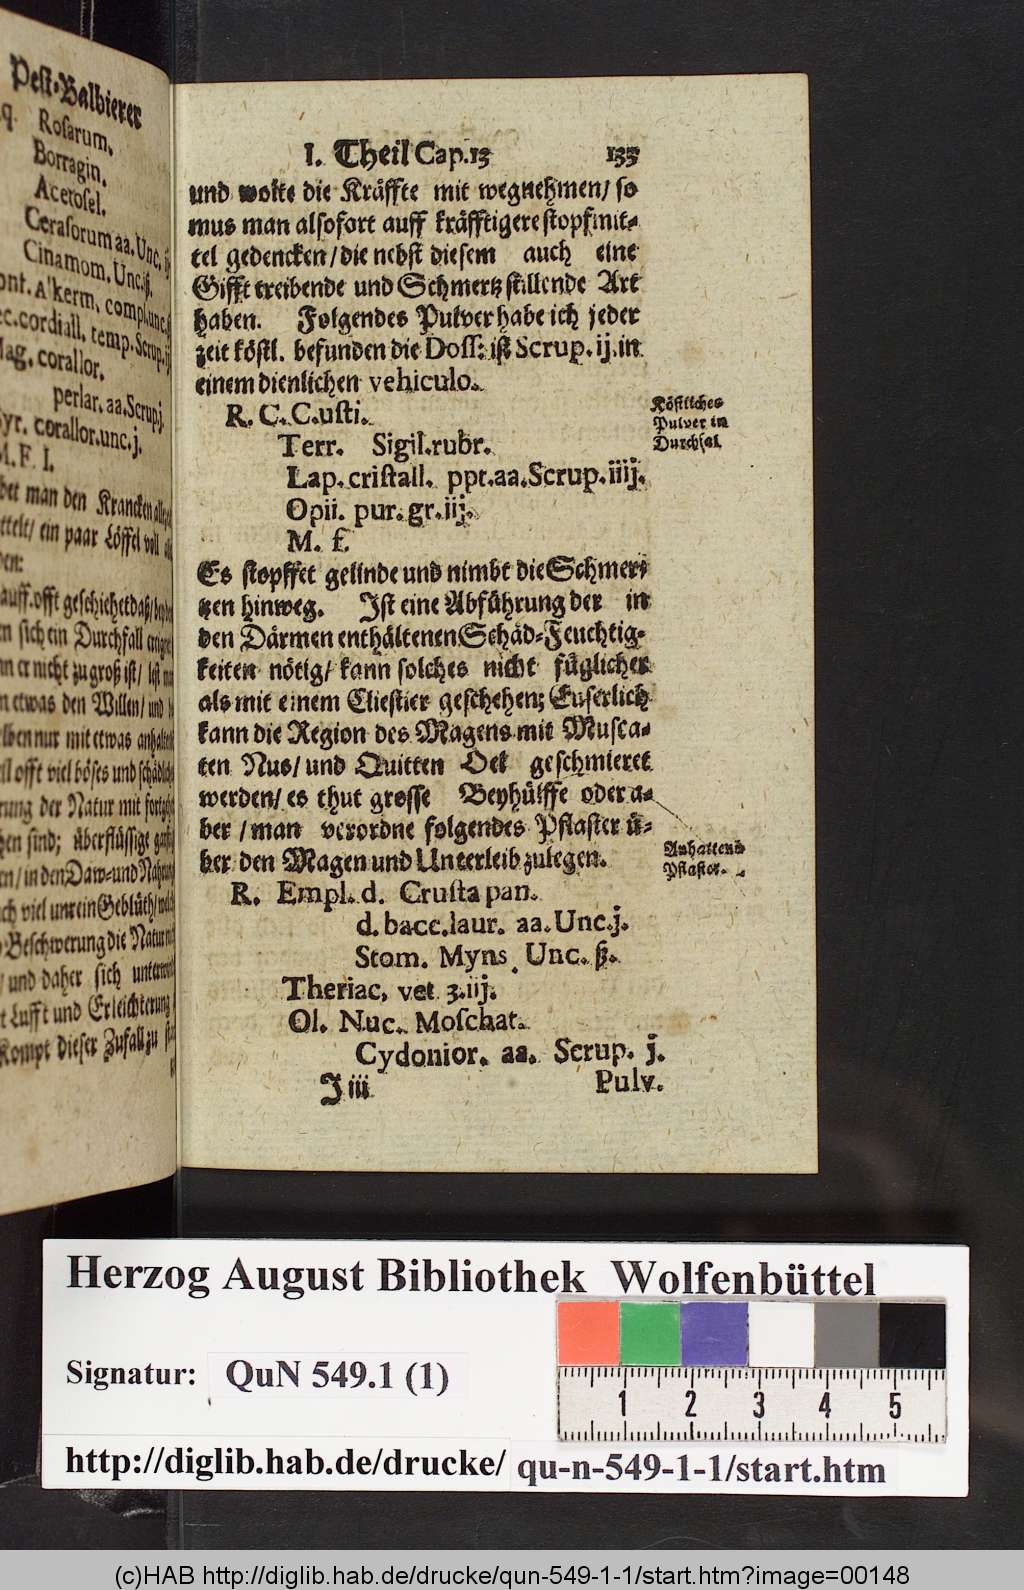 Pest-Balbierer
Rosarum.
Borragin.
Acetosel.
Cerasorum aa. Unc. ij
Cinamom. Unc. iß.
A'kerm. compl. unc.
cordiall. temp. Scrup. ij
corallor.
perlar. aa. Scrup. j.
corallor. unc. j.
M. F. I.
man den Krancken
ein paar Löffel voll
auff. offt geschiehet daß
sich ein Durchfall
er nicht zu groß ist / lest
etwas den Willen / und
nur mit etwas
offt viel böses und
der Natur mit
sind; überflüssige
in den Daw- und
viel unrein Geblüth /
Beschwerung die Natur
und daher sich
Lufft und Erleichterung
Kompt dieser Zufall zu
I. Theil Cap. 13 135
und wolte die Kräffte mit wegnehmen / so
mus man alsofort auff kräfftigere stopfmit-
tel gedencken / die nebst diesem auch eine
Gifft treibende und Schmertz stillende Art
haben. Folgendes Pulver habe ich jeder
zeit köstl. befunden die Doss: ist Scrup. ij. in
einem dienlichen vehiculo.
R. C. C. usti.
Terr. Sigil. rubr.
Lap. cristall. ppt. aa. Scrup. iiij.
Opii. pur. gr. iij.
M. f.
Köstliches
Pulver in
Durchfal.
Es stopffet gelinde und nimbt die Schmer-
tzen hinweg. Ist eine Abführung der in
den Därmen enthältenen Schäd-Feuchtig-
keiten nötig / kann solches nicht füglicher
als mit einem Cliestier geschehen; Euserlich
kann die Region des Magens mit Musca-
ten Nus / und Quitten Oel geschmieret
werden / es thut grosse Beyhülffe oder a-
ber / man verordne folgendes Pflaster ü-
ber den Magen und Unterleib zulegen.
Anhaltend
Pflaster.
R. Empl. d. Crusta pan.
d. bacc. laur. aa. Unc. j.
Stom. Myns. Unc. ß.
Theriac. vet ʒ. iij.
Ol. Nuc. Moschat.
Cydonior. aa. Scrup. j.
J iii Pulv.
Herzog August Bibliothek Wolfenbüttel
Signatur: QuN 549.1 (1)
1 2 3 4 5
http://diglib.hab.de/drucke/ qu-n-549-1-1/start.htm
(c)HAB http://diglib.hab.de/drucke/qun-549-1-1/start.htm?image=00148